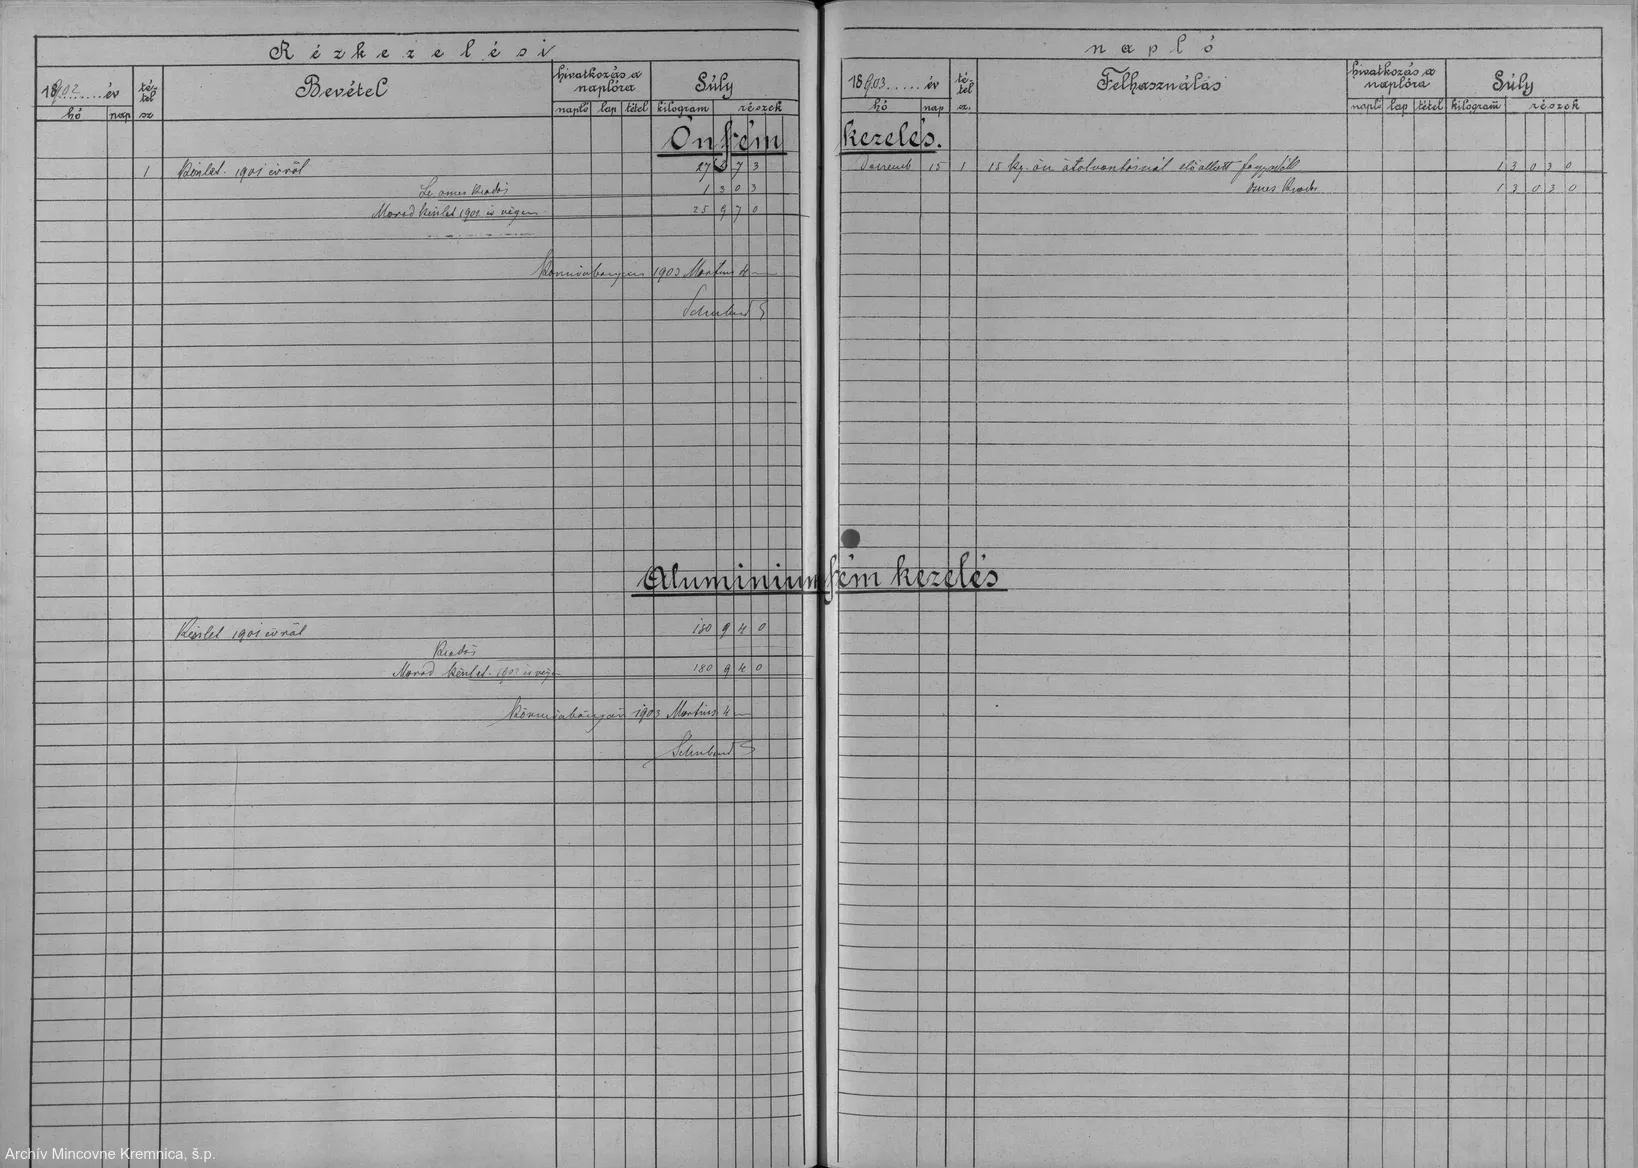 Rézkezelési
1902 év
té-
tel
sz
Bevétel
hivatkozás a
naplóra
Súly
hó nap napló lap tétel kilogram részek
Ónfém
1 Készlet 1901 évről 27 2 7 3
Le összes kiadás 1 3 0 3
Marad készlet 190 év végén 25 9 7 0
Körmöczbányán 1903 Martius 4
Készlet 1901 évről 180 9 4 0
Kiadás
Marad készlet 1902 év végén 180 9 4 0
Körmöczbányán 1903 Martius 4
napló
1903 év
té-
tel
sz.
Felhasználás
hivatkozás a
naplóra
Súly
hó nap napló lap tétel kilogram részek
kezelés.
15 1 15 kg. ón átolvasztásnál előállott 1 3 0 3 0
összes kiadás 1 3 0 3 0
Aluminiumfém kezelés
Archív Mincovne Kremnica, š.p.